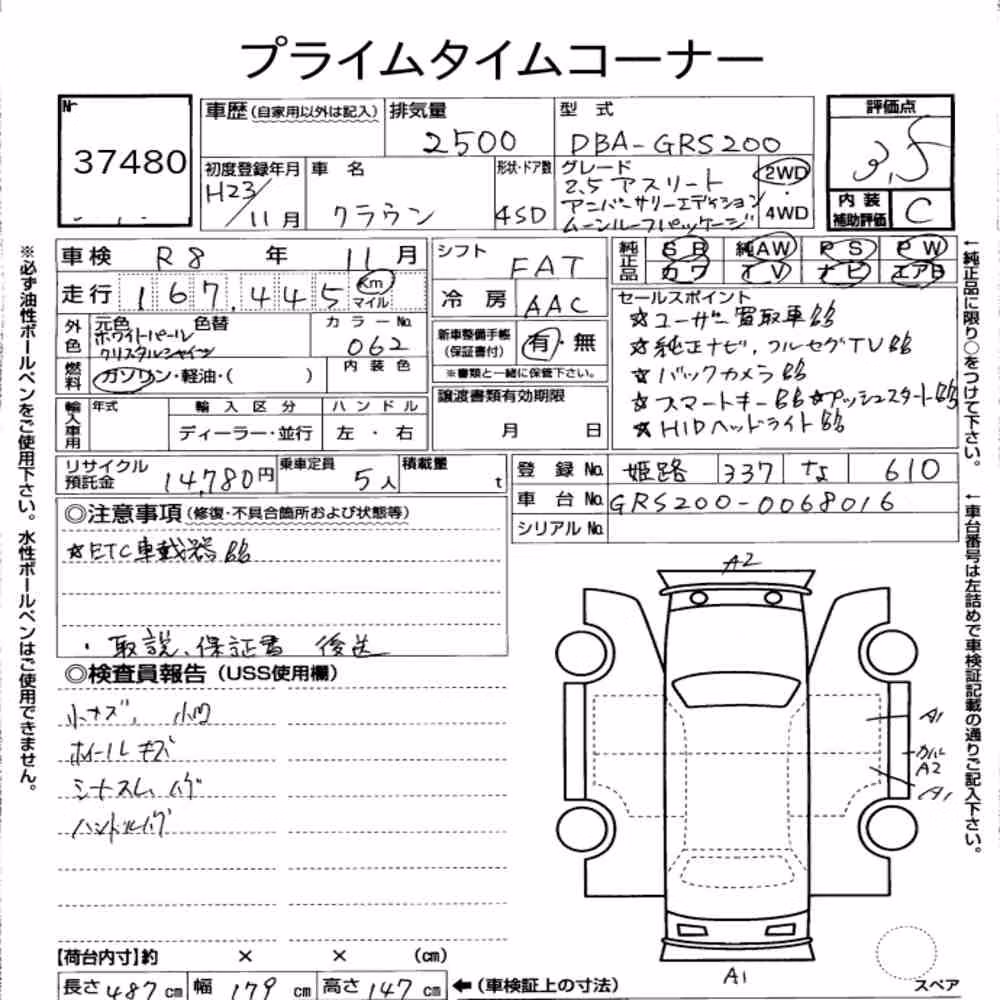 プライムタイムコーナー
Nr 37480
車歴(自家用以外は記入)
排気量 2500
型式 DBA-GRS200
評価点 3.5
初度登録年月 H23/11月
車名 クラウン
形状・ドア数 4SD
グレード 2.5 アスリート
アニバーサリーエディション
ムーンルーフパッケージ
2WD・4WD
内装補助評価 C
車検 R8年 11月
走行 167,445 Km マイル
シフト FAT
冷房 AAC
純正品 SR 純AW PS PW
カワ TV ナビ エアB
外色 元色 色替
ホワイトパール
クリスタルシャイン
カラーNo. 062
燃料 ガソリン・軽油・( )
内装色
新車整備手帳(保証書付) 有・無
※書類と一緒に保管下さい。
セールスポイント
☆ユーザー買取車
☆純正ナビ、フルセグTV
☆バックカメラ
☆スマートキー ☆プッシュスタート
☆HIDヘッドライト
輸入車用 年式
輸入区分 ディーラー・並行
ハンドル 左・右
譲渡書類有効期限 月 日
リサイクル預託金 14,780円
乗車定員 5人
積載量 t
登録No. 姫路 337 な 610
車台No. GRS200-0068016
シリアルNo.
◎注意事項(修復・不具合箇所および状態等)
☆ETC車載器
・取説、保証書 後送
◎検査員報告(USS使用欄)
小キズ、小凹
ホイールキズ
シートスレ、ハゲ
ハンドルハゲ
A2
A1
カルA2
A1
A1
スペア
【荷台内寸】約 × × (cm)
長さ 487cm 幅 179cm 高さ 147cm ←(車検証上の寸法)
※必ず油性ボールペンをご使用下さい。水性ボールペンはご使用できません。
←純正品に限り○をつけて下さい。
←車台番号は左詰めで車検証記載の通りご記入下さい。